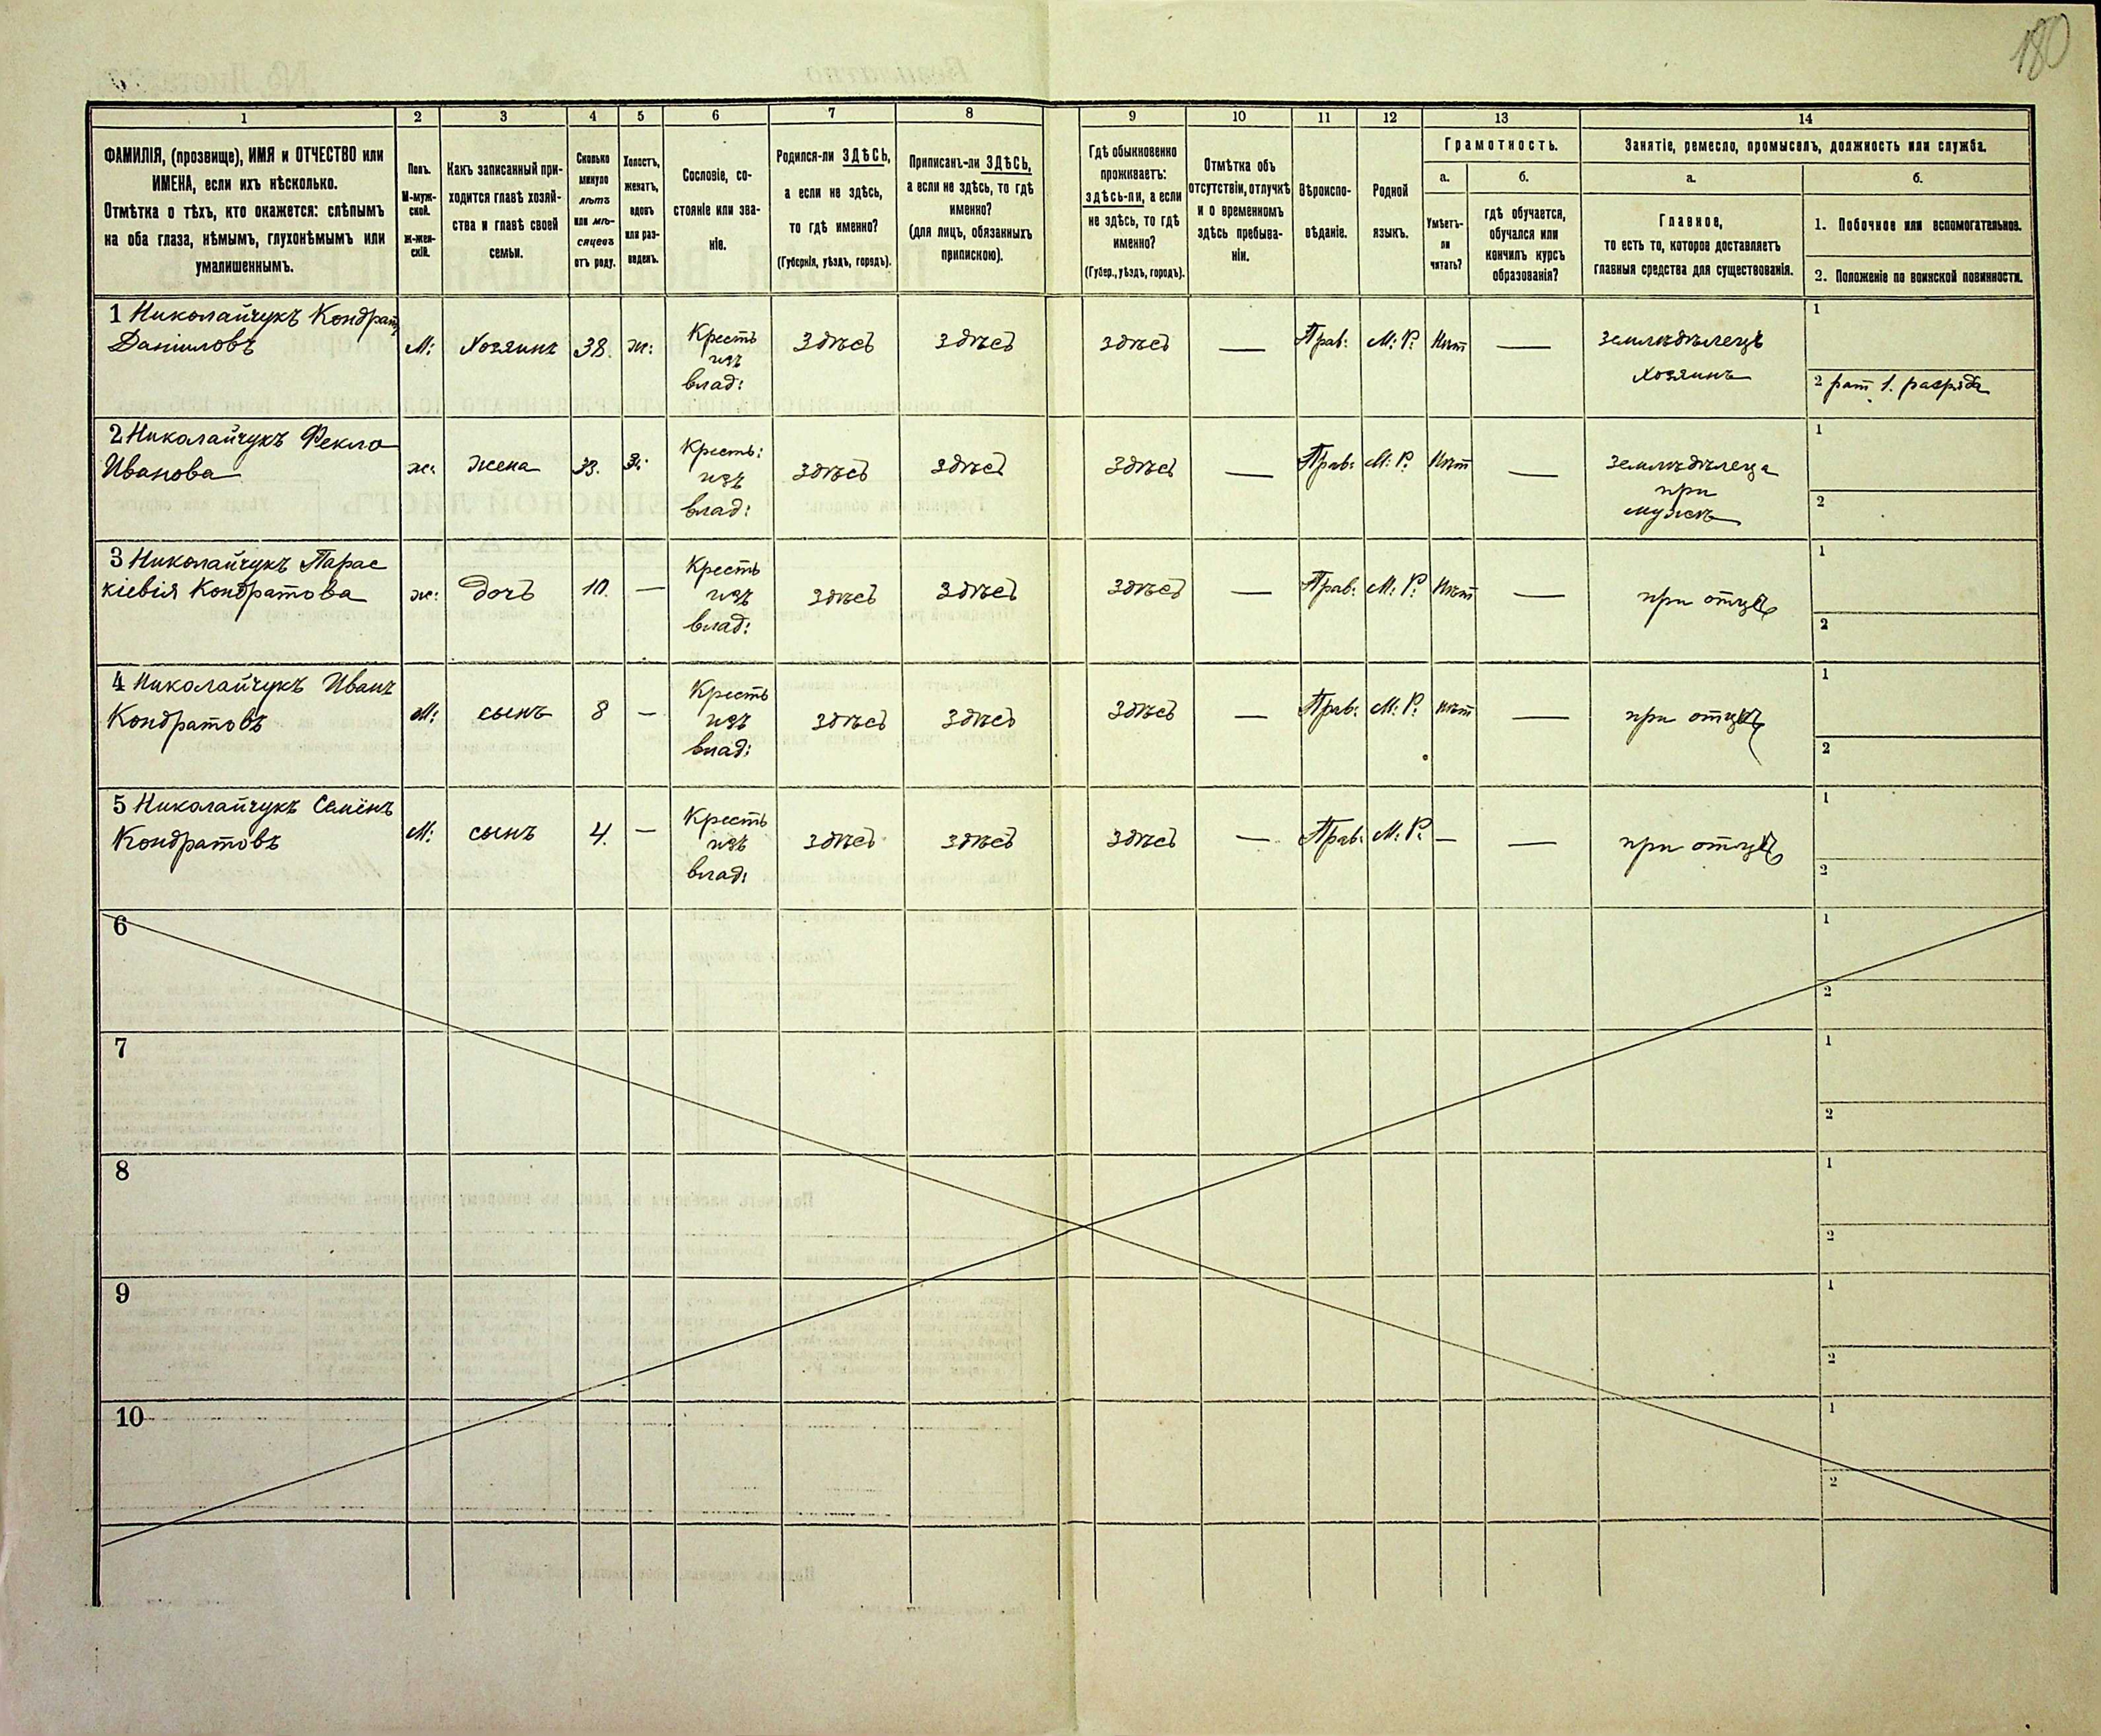 180
1 2 3 4 5 6 7 8 9 10 11 12 13 14
ФАМИЛІЯ, (прозвище), ИМЯ и ОТЧЕСТВО или
ИМЕНА, если ихъ нѣсколько.
Отмѣтка о тѣхъ, кто окажется: слѣпымъ
на оба глаза, нѣмымъ, глухонѣмымъ или
умалишеннымъ.
Полъ.
М-муж-
ской.
Ж-жен-
скій.
Какъ записанный при-
ходится главѣ хозяй-
ства и главѣ своей
семьи.
Сколько
минуло
лѣтъ
или мѣ-
сяцевъ
отъ роду.
Холостъ,
женатъ,
вдовъ
или раз-
веденъ.
Сословіе, со-
стояніе или зва-
ніе.
Родился-ли ЗДѢСЬ,
а если не здѣсь,
то гдѣ именно?
(Губернія, уѣздъ, городъ).
Приписанъ-ли ЗДѢСЬ,
а если не здѣсь, то гдѣ
именно?
(для лицъ, обязанныхъ
припискою).
Гдѣ обыкновенно
проживаетъ:
здѣсь-ли, а если
не здѣсь, то гдѣ
именно?
(Губер., уѣздъ, городъ).
Отмѣтка объ
отсутствіи, отлучкѣ
и о временномъ
здѣсь пребыва-
ніи.
Вѣроиспо-
вѣданіе.
Родной
языкъ.
Грамотность.
а.
Умѣетъ-
ли
читать?
б.
гдѣ обучается,
обучался или
кончилъ курсъ
образованія?
Занятіе, ремесло, промыселъ, должность или служба.
а.
Главное,
то есть то, которое доставляетъ
главныя средства для существованія.
б.
1. Побочное или вспомогательное.
2. Положеніе по воинской повинности.
1 Николайчукъ Кондратъ
Даніиловъ
М:
Хозяинъ
38.
ж:
Кресть
изъ
влад:
Здѣсь
Здѣсь
здѣсь
—
Прав:
М: Р:
Нѣт
—
землѣдѣлецъ
хозяинъ
1
2 рат 1. разряда
2 Николайчукъ Фекла
Иванова
ж:
жена
33.
З:
Кресть:
изъ
влад:
здѣсь
здѣсь
здѣсь
—
Прав:
М: Р:
Нѣт
—
землѣдѣлеца
при
мужѣ
1
2
3 Николайчукъ Парас
кіевія Кондратова
ж:
дочь
10.
—
Кресть
изъ
влад:
здѣсь
здѣсь
здѣсь
—
Прав:
М: Р:
Нѣт
—
при отцѣ
1
2
4 Николайчукъ Иванъ
Кондратовъ
М:
сынъ
8
—
Кресть
изъ
влад:
здѣсь
здѣсь
здѣсь
—
Прав:
М: Р:
Нѣт
—
при отцѣ
1
2
5 Николайчукъ Семёнъ
Кондратовъ
М:
сынъ
4.
—
Кресть
изъ
влад:
здѣсь
здѣсь
здѣсь
—
Прав:
М: Р:
—
—
при отцѣ
1
2
6
1
2
7
1
2
8
1
2
9
1
2
10
1
2